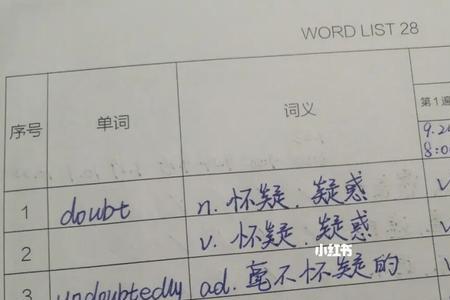 WORD LIST 28
序号 单词 词义 第1遍
9.2
8:0
1 doubt n. 怀疑. 疑惑
2 v. 怀疑. 疑惑
小红书
3 undoubtedly ad. 毫不怀疑的